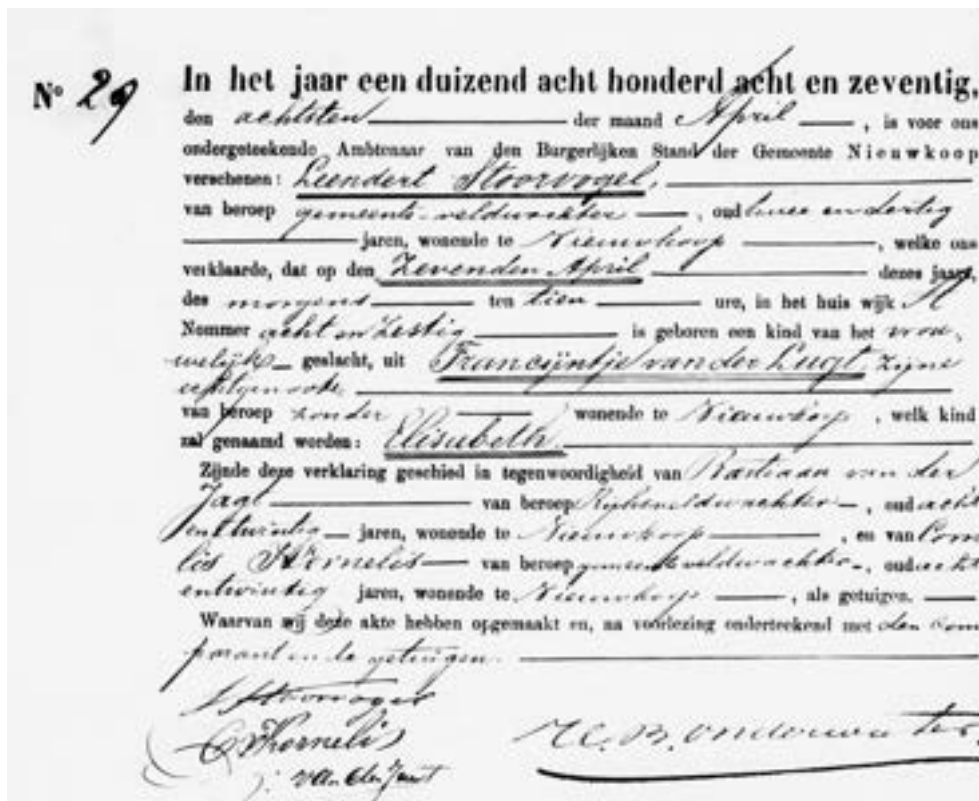 No 29 In het jaar een duizend acht honderd acht en zeventig,
den achtsten der maand April, is voor ons
ondergeteekende Ambtenaar van den Burgerlijken Stand der Gemeente Nieuwkoop
verschenen: Leendert Stoorvogel,
van beroep gemeente-veldwachter, oud twee en dertig
jaren, wonende te Nieuwkoop, welke ons
verklaarde, dat op den Zevenden April dezes jaars,
des morgens ten tien ure, in het huis wijk A
Nommer acht en Zestig is geboren een kind van het vrou-
welijk geslacht, uit Francijntje van der Lugt, zijne
echtgenoote
van beroep zonder wonende te Nieuwkoop, welk kind
zal genaamd worden: Elisabeth
Zijnde deze verklaring geschied in tegenwoordigheid van Bastiaan van der
Jagt van beroep Rijksveldwachter, oud acht
en twintig jaren, wonende te Nieuwkoop, en van Corne
lis van beroep gemeente veldwachter, oud acht
entwintig jaren, wonende te Nieuwkoop, als getuigen.
Waarvan wij deze akte hebben opgemaakt en, na voorlezing onderteekend met den com
parant en de getuigen.
L Stoorvogel
van der Jagt